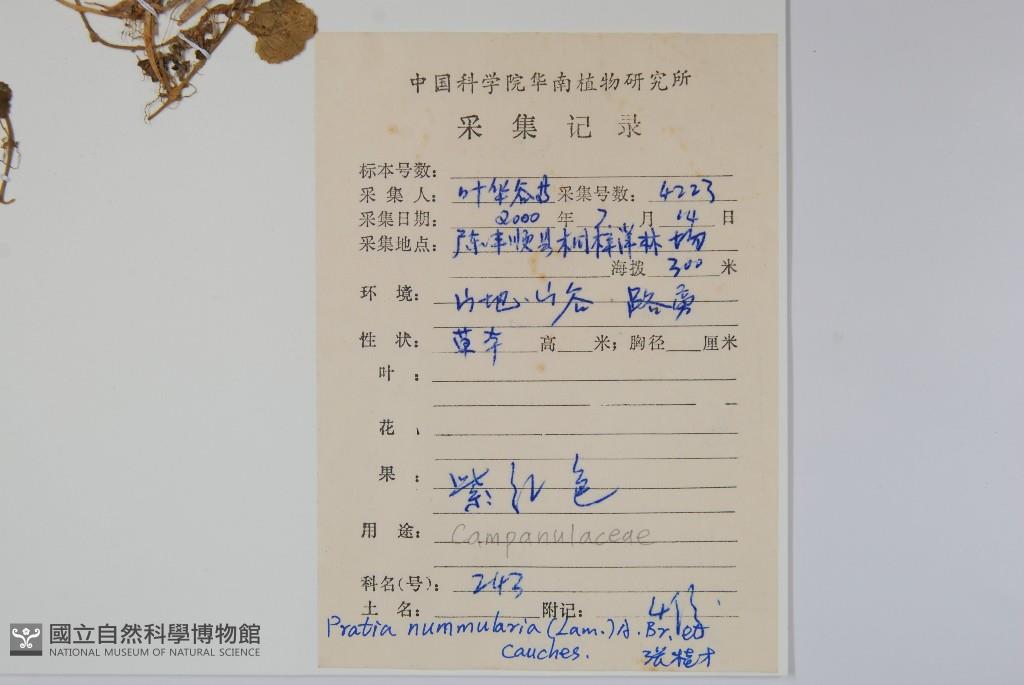 中国科学院华南植物研究所
采集记录
标本号数:
采集人: 叶华谷 采集号数: 4223
采集日期: 2000 年 7 月 14 日
采集地点: 广东丰顺县桐梓洋林场
海拨 300 米
环境: 山地.山谷 路旁
性状: 草本 高 米; 胸径 厘米
叶:
花:
果: 紫红色
用途: Campanulaceae
科名(号): 243
土名: 附记: 4份.
Pratia nummularia (Lam.) A. Br. et
Cauches. 张桂才
國立自然科學博物館
NATIONAL MUSEUM OF NATURAL SCIENCE